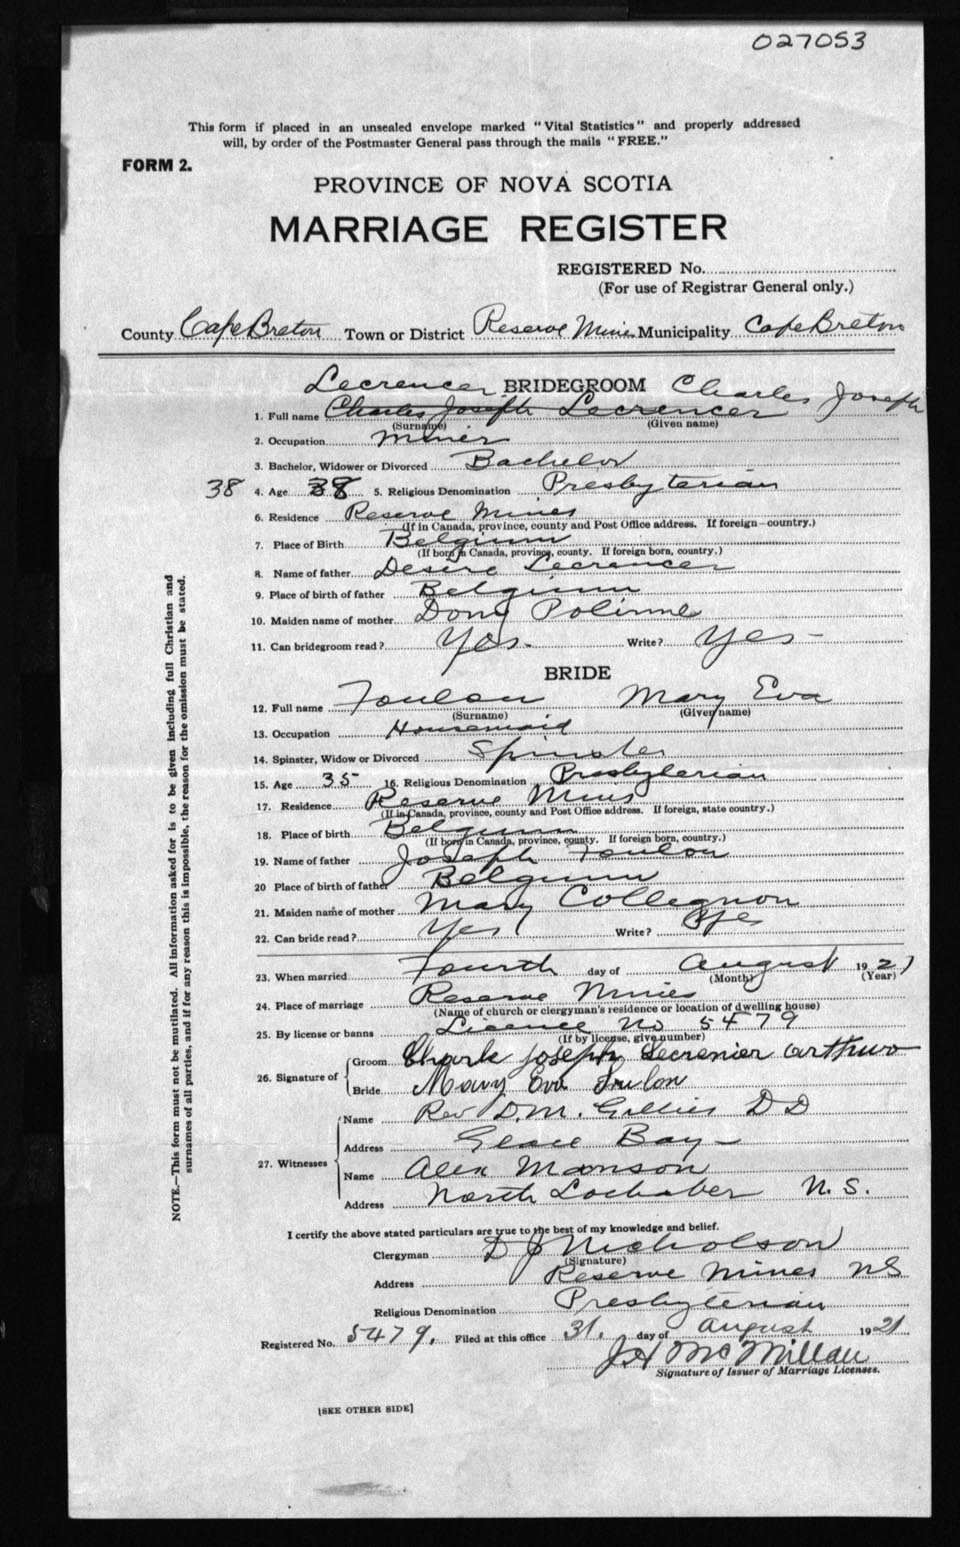 027053
This form if placed in an unsealed envelope marked "Vital Statistics" and properly addressed
will, by order of the Postmaster General pass through the mails "FREE."
FORM 2.
PROVINCE OF NOVA SCOTIA
MARRIAGE REGISTER
REGISTERED No.
(For use of Registrar General only.)
County Cape Breton Town or District Reserve Mines Municipality Cape Breton
Lecrencer BRIDEGROOM Charles Joseph
1. Full name Charles Joseph Lecrencer
(Surname) (Given name)
2. Occupation Miner
3. Bachelor, Widower or Divorced Bachelor
38 4. Age 38 5. Religious Denomination Presbyterian
6. Residence Reserve Mines
(If in Canada, province, county and Post Office address. If foreign—country.)
7. Place of Birth Belgium
(If born in Canada, province, county. If foreign born, country.)
8. Name of father Desire Lecrencer
9. Place of birth of father Belgium
10. Maiden name of mother
11. Can bridegroom read? Yes. Write? Yes
BRIDE
12. Full name Foulon Mary Eva
(Surname) (Given name)
13. Occupation Housemaid
14. Spinster, Widow or Divorced Spinster
15. Age 35 16. Religious Denomination Presbyterian
17. Residence Reserve Mines
(If in Canada, province, county and Post Office address. If foreign, state country.)
18. Place of birth Belgium
(If born in Canada, province, county. If foreign born, country.)
19. Name of father Joseph Foulon
20 Place of birth of father Belgium
21. Maiden name of mother Mary Collegnon
22. Can bride read? Yes Write? Yes
23. When married Fourth day of August 1921
(Month) (Year)
24. Place of marriage Reserve Mines
(Name of church or clergyman's residence or location of dwelling house)
25. By license or banns Licence No 5479
(If by license, give number)
26. Signature of Groom Joseph Lecrenier
Bride Mary Eva Foulon
27. Witnesses Name Rev D. M. Gillies D D
Address Glace Bay
Name Alex Manson
Address North Lochaber N. S.
I certify the above stated particulars are true to the best of my knowledge and belief.
Clergyman D J Nicholson
(Signature)
Address Reserve Mines NS
Religious Denomination Presbyterian
Registered No. 5479. Filed at this office 31. day of August 1921
J H McMillan
Signature of Issuer of Marriage Licenses.
[SEE OTHER SIDE]
NOTE.—This form must not be mutilated. All information asked for is to be given including full Christian and
surnames of all parties, and if for any reason this is impossible, the reason for the omission must be stated.